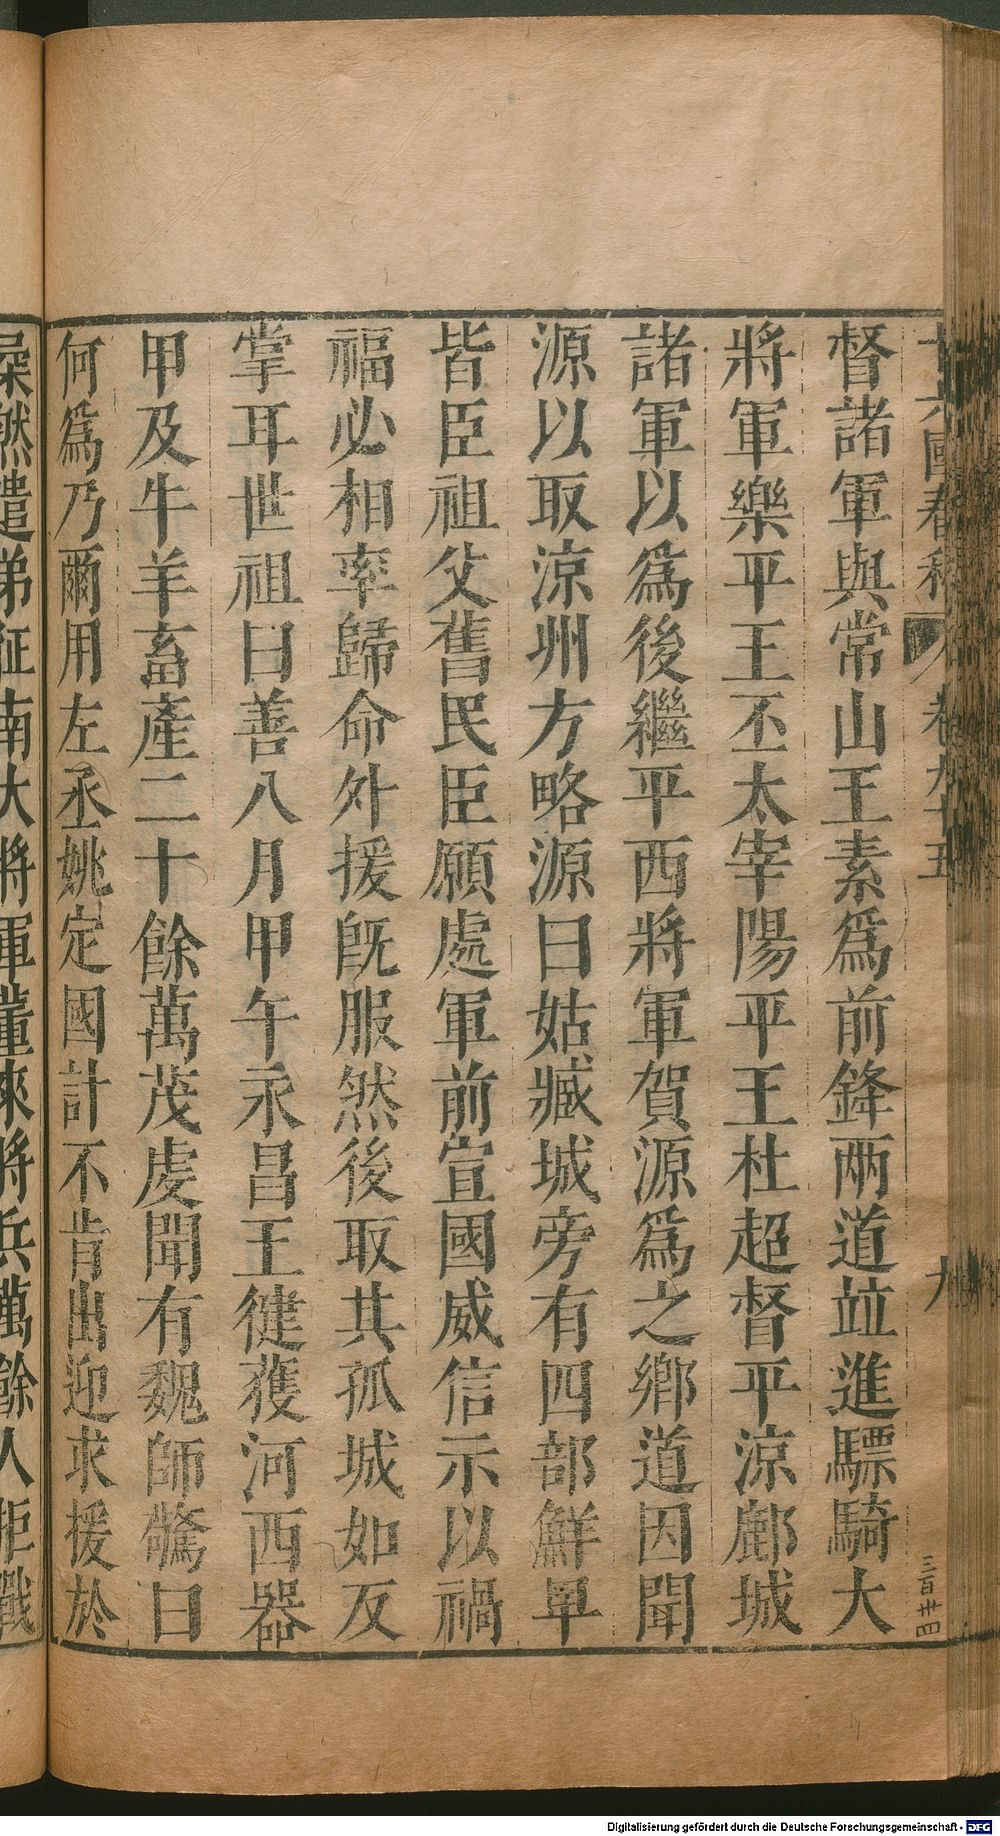 十六國春秋 卷九十五 九
三百廿四
督諸軍與常山王素爲前鋒兩道竝進驃騎大
將軍樂平王丕太宰陽平王杜超督平涼鄜城
諸軍以爲後繼平西將軍賀源爲之鄉道因聞
源以取涼州方略源曰姑臧城旁有四部鮮卑
皆臣祖父舊民臣願處軍前宣國威信示以禍
福必相率歸命外援旣服然後取其孤城如反
掌耳世祖曰善八月甲午永昌王健獲河西器
甲及牛羊畜產二十餘萬茂虔聞有魏師驚曰
何爲乃爾用左丞姚定國計不肯出迎求援於
然遣弟征南大將軍董來將兵萬餘人拒戰
Digitalisierung gefördert durch die Deutsche Forschungsgemeinschaft - DFG